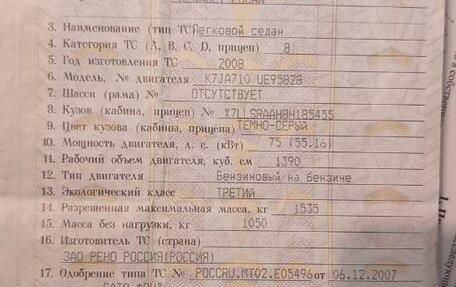 3. Наименование (тип ТС) Легковой седан
4. Категория ТС (А, В, С, D, прицеп) В
5. Год изготовления ТС 2008
6. Модель, № двигателя K7JA710 UE95828
7. Шасси (рама) № ОТСУТСТВУЕТ
8. Кузов (кабина, прицеп) № X7LLSRAAH8H185455
9. Цвет кузова (кабины, прицепа) ТЕМНО-СЕРЫЙ
10. Мощность двигателя, л. с. (кВт) 75 (55.16)
11. Рабочий объем двигателя, куб. см 1390
12. Тип двигателя Бензиновый на бензине
13. Экологический класс ТРЕТИЙ
14. Разрешенная максимальная масса, кг 1535
15. Масса без нагрузки, кг 1050
16. Изготовитель ТС (страна)
ЗАО РЕНО РОССИЯ(РОССИЯ)
17. Одобрение типа ТС № РОССRU.МТ02.Е05496 от 06.12.2007